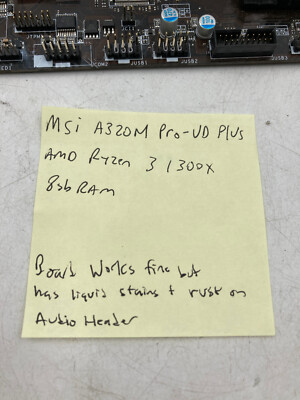 JTPM1
COM2
JUSB1
JUSB2
MSi A320M Pro-VD Plus
AMD Ryzen 3 1300x
8gb RAM
Board Works fine but
has liquid stains + rust on
Audio Header